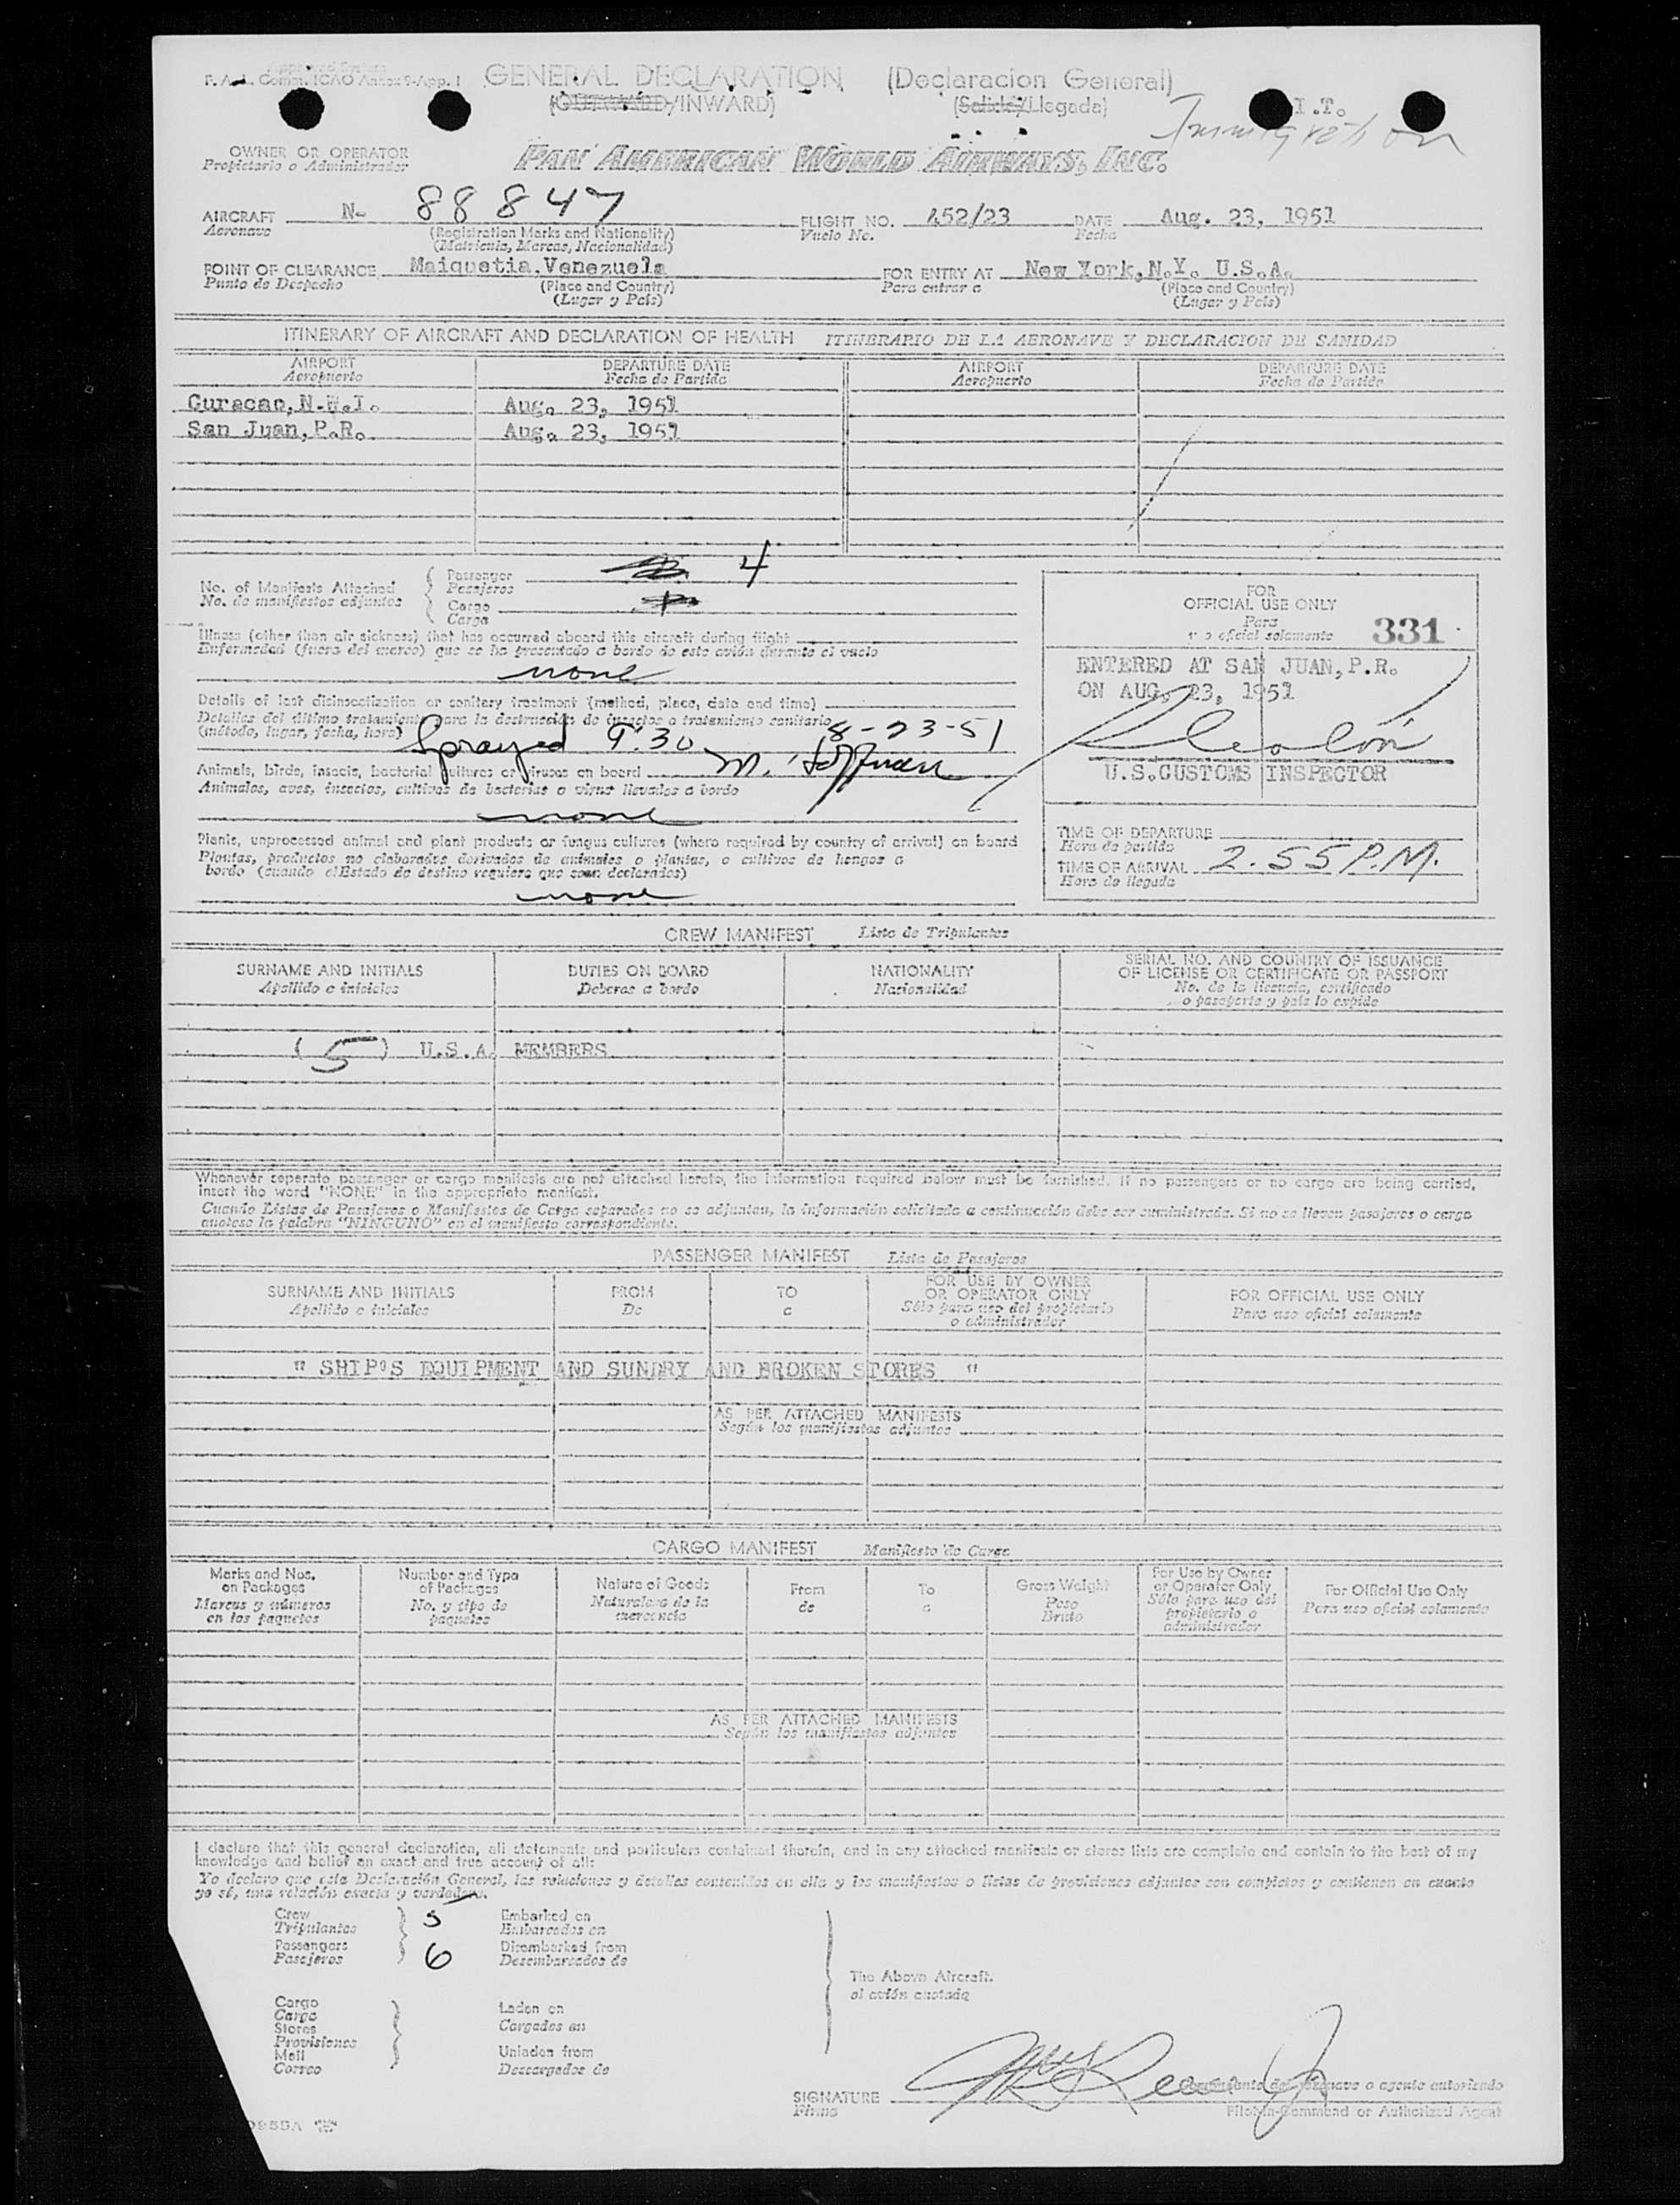 F. A. L. Comm. ICAO Annex 9-App. 1 GENERAL DECLARATION (Declaracion General)
(OUTWARD/INWARD) (Salida/Llegada) I.T.
Immigration
OWNER OR OPERATOR PAN AMERICAN WORLD AIRWAYS, INC.
Propietario o Administrador
AIRCRAFT N- 88847 FLIGHT NO. 452/23 DATE Aug. 23, 1951
Aeronave (Registration Marks and Nationality) Vuelo No. Fecha
(Matricula, Marcas, Nacionalidad)
POINT OF CLEARANCE Maiquetia, Venezuela FOR ENTRY AT New York, N.Y. U.S.A.
Punto de Despacho (Place and Country) Para entrar a (Place and Country)
(Lugar y País) (Lugar y País)
ITINERARY OF AIRCRAFT AND DECLARATION OF HEALTH ITINERARIO DE LA AERONAVE Y DECLARACION DE SANIDAD
AIRPORT DEPARTURE DATE AIRPORT DEPARTURE DATE
Aeropuerto Fecha de Partida Aeropuerto Fecha de Partida
Curacao, N.W.I. Aug. 23, 1951
San Juan, P.R. Aug. 23, 1951
No. of Manifests Attached Passenger 4
No. de manifiestos adjuntos Pasajeros
Cargo
Carga
FOR
OFFICIAL USE ONLY
Para
uso oficial solamente 331
Illness (other than air sickness) that has occurred aboard this aircraft during flight
Enfermedad (fuera del mareo) que se ha presentado a bordo de este avión durante el vuelo
none
ENTERED AT SAN JUAN, P.R.
ON AUG. 23, 1951
U.S. CUSTOMS INSPECTOR
Details of last disinsectization or sanitary treatment (method, place, date and time)
Detalles del último tratamiento para la destrucción de insectos o tratamiento sanitario
(método, lugar, fecha, hora) Sprayed 9:30 8-23-51
Animals, birds, insects, bacterial cultures or viruses on board M. Hoffman
Animales, aves, insectos, cultivos de bacterias o virus llevados a bordo
none
Plants, unprocessed animal and plant products or fungus cultures (where required by country of arrival) on board
Plantas, productos no elaborados derivados de animales o plantas, o cultivos de hongos a
bordo (cuando el Estado de destino requiera que sean declarados)
none
TIME OF DEPARTURE
Hora de partida
TIME OF ARRIVAL 2.55 P.M.
Hora de llegada
CREW MANIFEST Lista de Tripulantes
SURNAME AND INITIALS DUTIES ON BOARD NATIONALITY SERIAL NO. AND COUNTRY OF ISSUANCE
OF LICENSE OR CERTIFICATE OR PASSPORT
Apellido e iniciales Deberes a bordo Nacionalidad No. de la licencia, certificado
o pasaporte y país lo expide
(5) U.S.A. MEMBERS
Whenever separate passenger or cargo manifests are not attached hereto, the information required below must be furnished. If no passengers or no cargo are being carried,
insert the word "NONE" in the appropriate manifest.
Cuando Listas de Pasajeros o Manifiestos de Carga separados no se adjuntan, la información solicitada a continuación debe ser suministrada. Si no se llevan pasajeros o carga
anotese la palabra "NINGUNO" en el manifiesto correspondiente.
PASSENGER MANIFEST Lista de Pasajeros
SURNAME AND INITIALS FROM TO FOR USE BY OWNER OR OPERATOR ONLY FOR OFFICIAL USE ONLY
Apellido e iniciales De a Sólo para uso del propietario o administrador Para uso oficial solamente
" SHIP'S EQUIPMENT AND SUNDRY AND BROKEN STORES "
AS PER ATTACHED MANIFESTS
Según los manifiestos adjuntos
CARGO MANIFEST Manifiesto de Carga
Marks and Nos. on Packages Number and Type of Packages Nature of Goods From To Gross Weight For Use by Owner or Operator Only For Official Use Only
Marcas y números en los paquetes No. y tipo de paquetes Naturaleza de la mercancia de a Peso Bruto Sólo para uso del propietario o administrador Para uso oficial solamente
AS PER ATTACHED MANIFESTS
Según los manifiestos adjuntos
I declare that this general declaration, all statements and particulars contained therein, and in any attached manifests or stores lists are complete and contain to the best of my
knowledge and belief an exact and true account of all:
Yo declaro que esta Declaración General, las relaciones y detalles contenidos en ella y los manifiestos o listas de provisiones adjuntos son completos y contienen en cuanto
yo sé, una relación exacta y verdadera.
Crew 5 Embarked on
Tripulantes Embarcados en
Passengers 6 Disembarked from
Pasajeros Desembarcados de
The Above Aircraft.
al avión anotado
Cargo
Carga Laden on
Stores Cargados en
Provisiones
Mail Unladen from
Correo Descargados de
SIGNATURE Comandante del aeronave o agente autorizado
Firma Pilot-in-Command or Authorized Agent